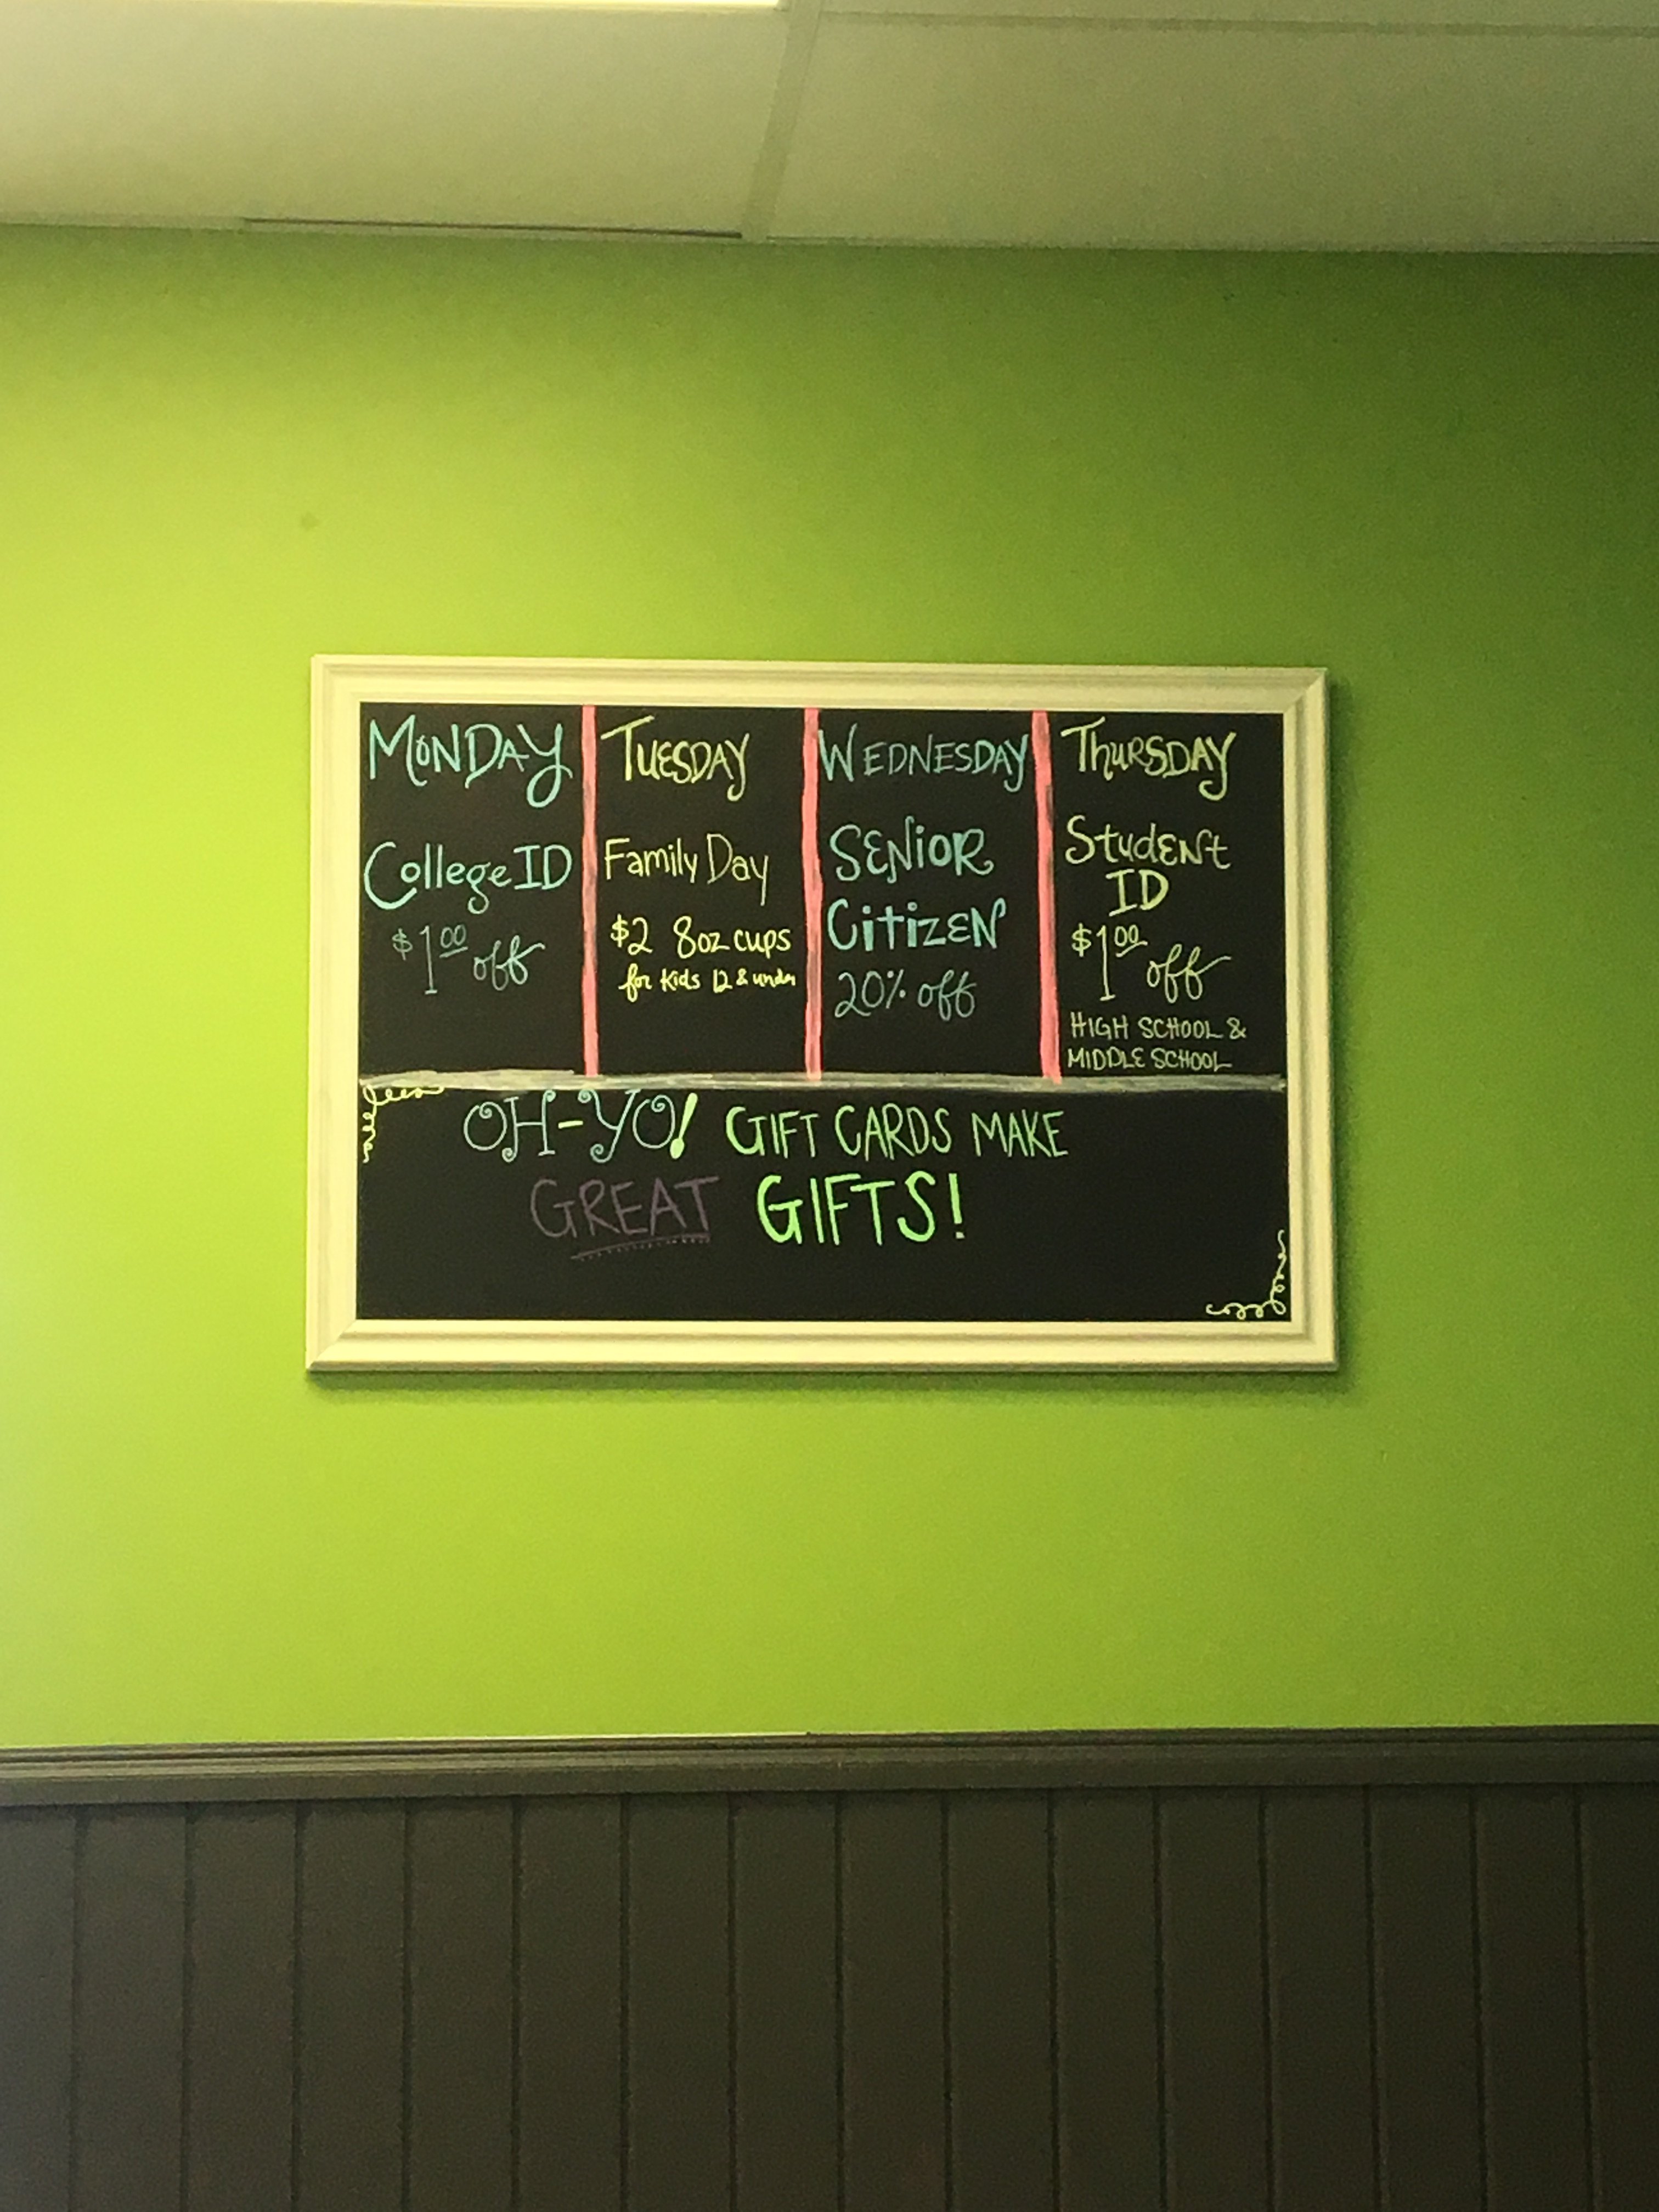 MONDAY
College ID
$1.00 off
TUESDAY
Family Day
$2 8oz cups
for kids 12 & under
WEDNESDAY
SENIOR
CITIZEN
20% off
THURSDAY
STUDENT
ID
$1.00 off
HIGH SCHOOL &
MIDDLE SCHOOL
OH-YO! GIFT CARDS MAKE
GREAT GIFTS!